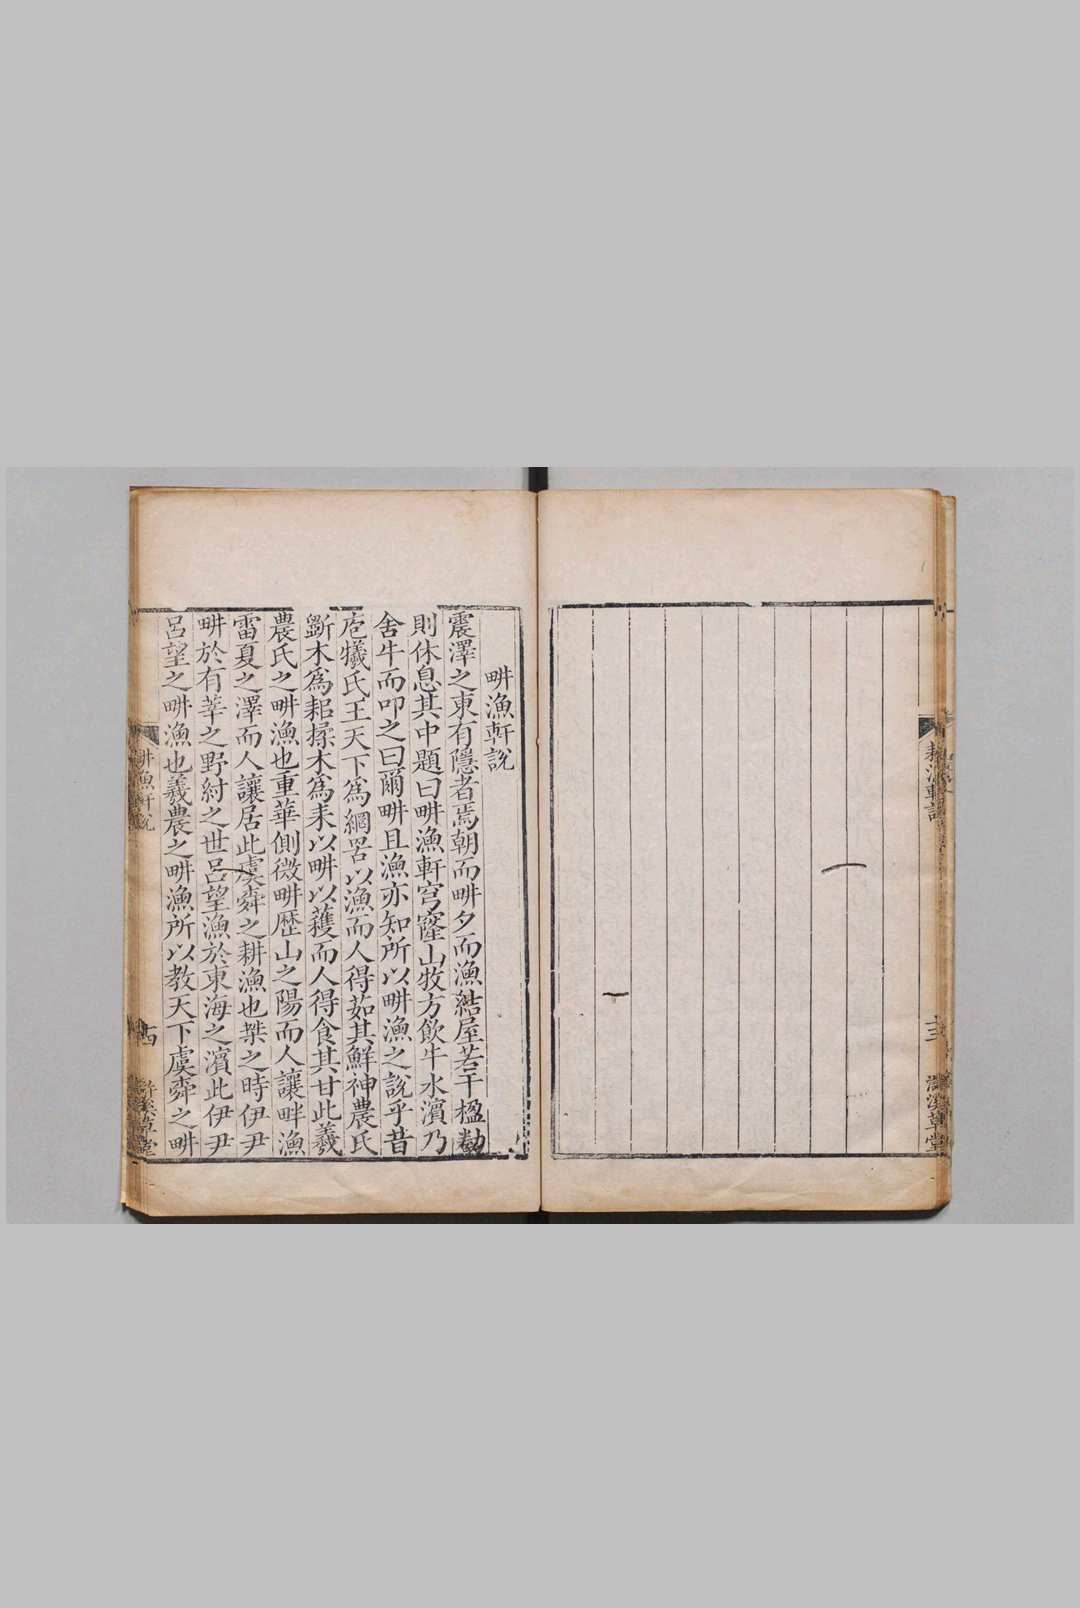 畊漁軒説
震澤之東有隱者焉朝而畊夕而漁結屋若干楹勌
則休息其中題曰畊漁軒穹窿山牧方飲牛水濱乃
舍牛而叩之曰爾畊且漁亦知所以畊漁之説乎昔
庖犧氏王天下爲網罟以漁而人得茹其鮮神農氏
斵木爲耜揉木爲耒以畊以蓻而人得食其甘此羲
農氏之畊漁也重華側微畊歴山之陽而人讓畔漁
雷夏之澤而人讓居此虞舜之耕漁也桀之時伊尹
畊於有莘之野紂之世吕望漁於東海之濱此伊尹
吕望之畊漁也羲農之畊漁所以教天下虞舜之畊
畊漁軒説
十四